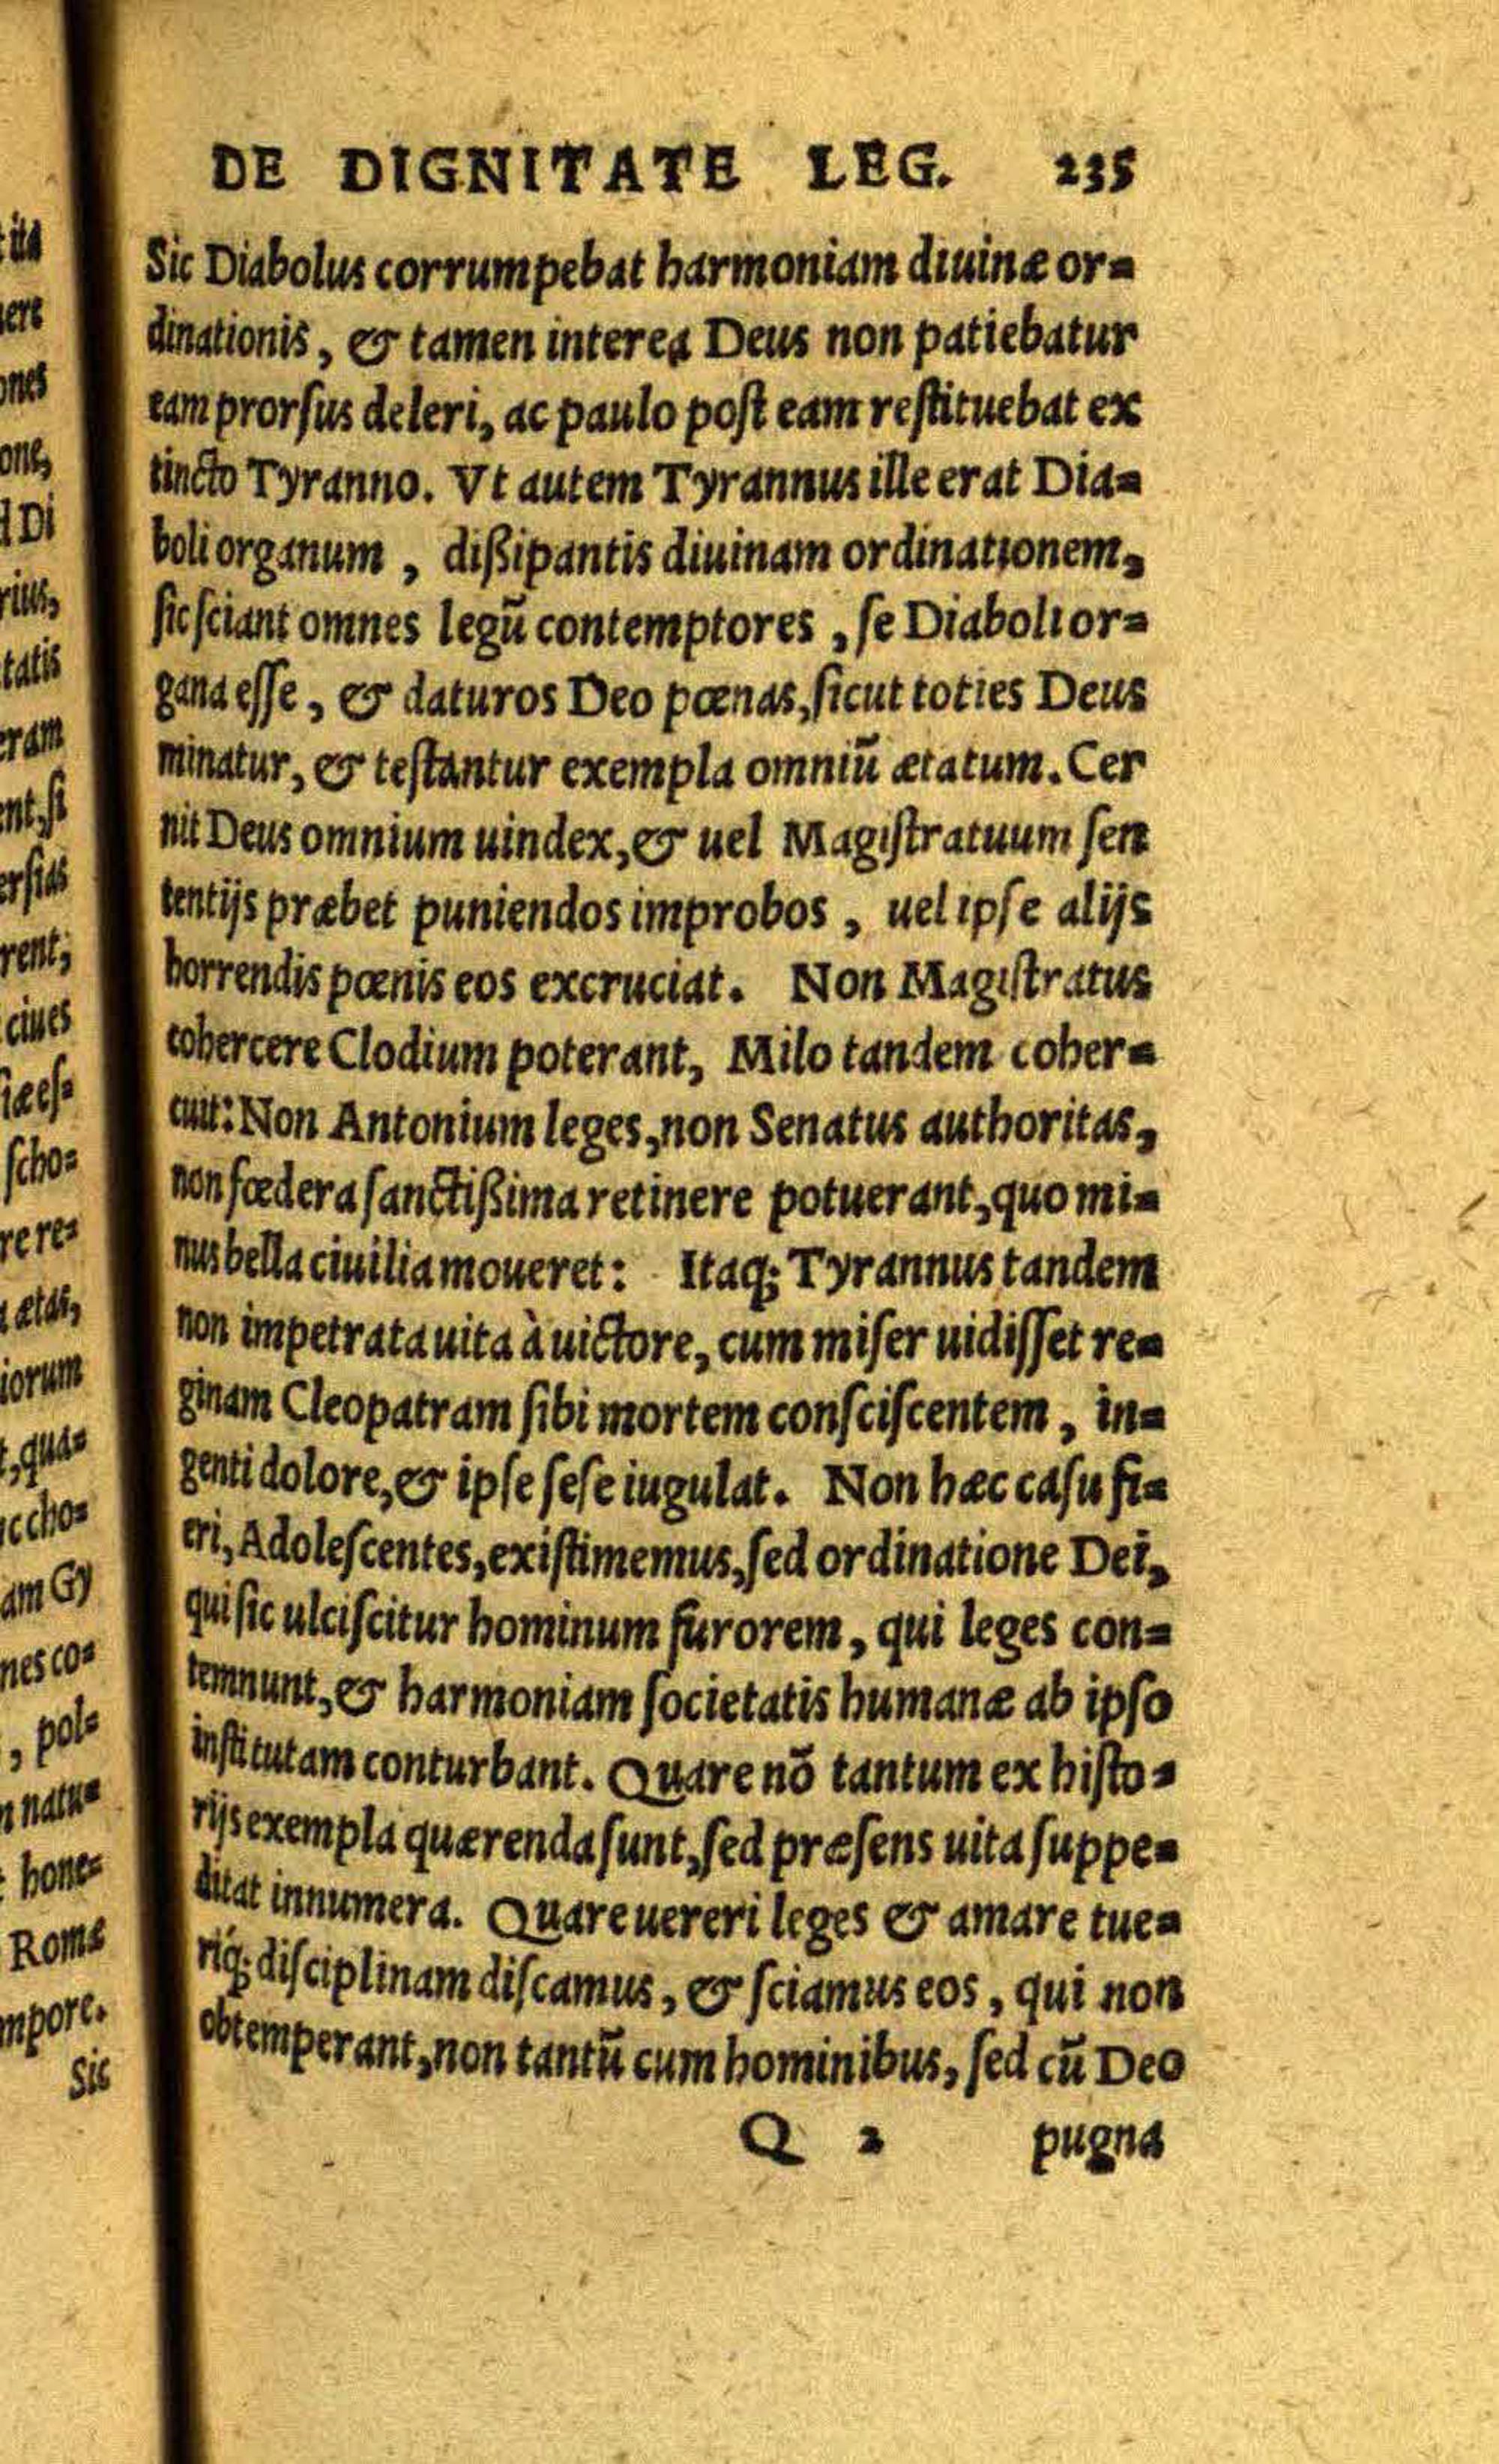 DE DIGNITATE LEG. 235
Sic Diabolus corrumpebat harmoniam diuinæ or=
dinationis, & tamen interea Deus non patiebatur
eam prorſus deleri, ac paulo poſt eam reſtituebat ex
tincto Tyranno. Vt autem Tyrannus ille erat Dia=
boli organum, dißipantis diuinam ordinationem,
ſic ſciant omnes legū contemptores, ſe Diaboli or=
gana eſſe, & daturos Deo pœnas, ſicut toties Deus
minatur, & teſtantur exempla omniū ætatum. Cer
nit Deus omnium uindex, & uel Magiſtratuum ſen
tentijs præbet puniendos improbos, uel ipſe alijs
horrendis pœnis eos excruciat. Non Magiſtratus
cohercere Clodium poterant, Milo tandem coher=
cuit: Non Antonium leges, non Senatus authoritas,
non fœdera ſanctißima retinere potuerant, quo mi=
nus bella ciuilia moueret: Itaq; Tyrannus tandem
non impetrata uita à uictore, cum miſer uidiſſet re=
ginam Cleopatram ſibi mortem conſciſcentem, in=
genti dolore, & ipſe ſeſe iugulat. Non hæc caſu fi=
eri, Adoleſcentes, exiſtimemus, ſed ordinatione Dei,
qui ſic ulciſcitur hominum furorem, qui leges con=
temnunt, & harmoniam ſocietatis humanæ ab ipſo
inſtitutam conturbant. Quare nō tantum ex hiſto=
rijs exempla quærenda ſunt, ſed præſens uita ſuppe=
ditat innumera. Quare uereri leges & amare tue=
riq́; diſciplinam diſcamus, & ſciamus eos, qui non
obtemperant, non tantū cum hominibus, ſed cū Deo
Q 2 pugna